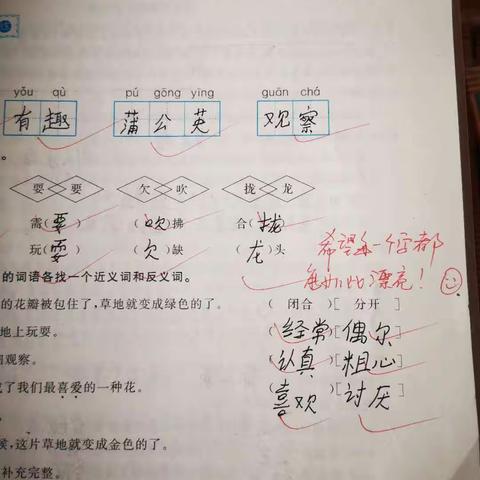 yǒu qù pú gōng yīng guān chá
有趣 蒲公英 观察
。
耍 要 欠 吹 拢 龙
需(要) (吹)拂 合(拢)
玩(耍) (欠)缺 (龙)头
希望每一个字都
能如此漂亮!
的词语各找一个近义词和反义词。
的花瓣被包住了,草地就变成绿色的了。 (闭合)[分开]
地上玩耍。 (经常)[偶尔]
观察。 (认真)[粗心]
了我们最喜爱的一种花。 (喜欢)[讨厌]
,这片草地就变成金色的了。
补充完整。